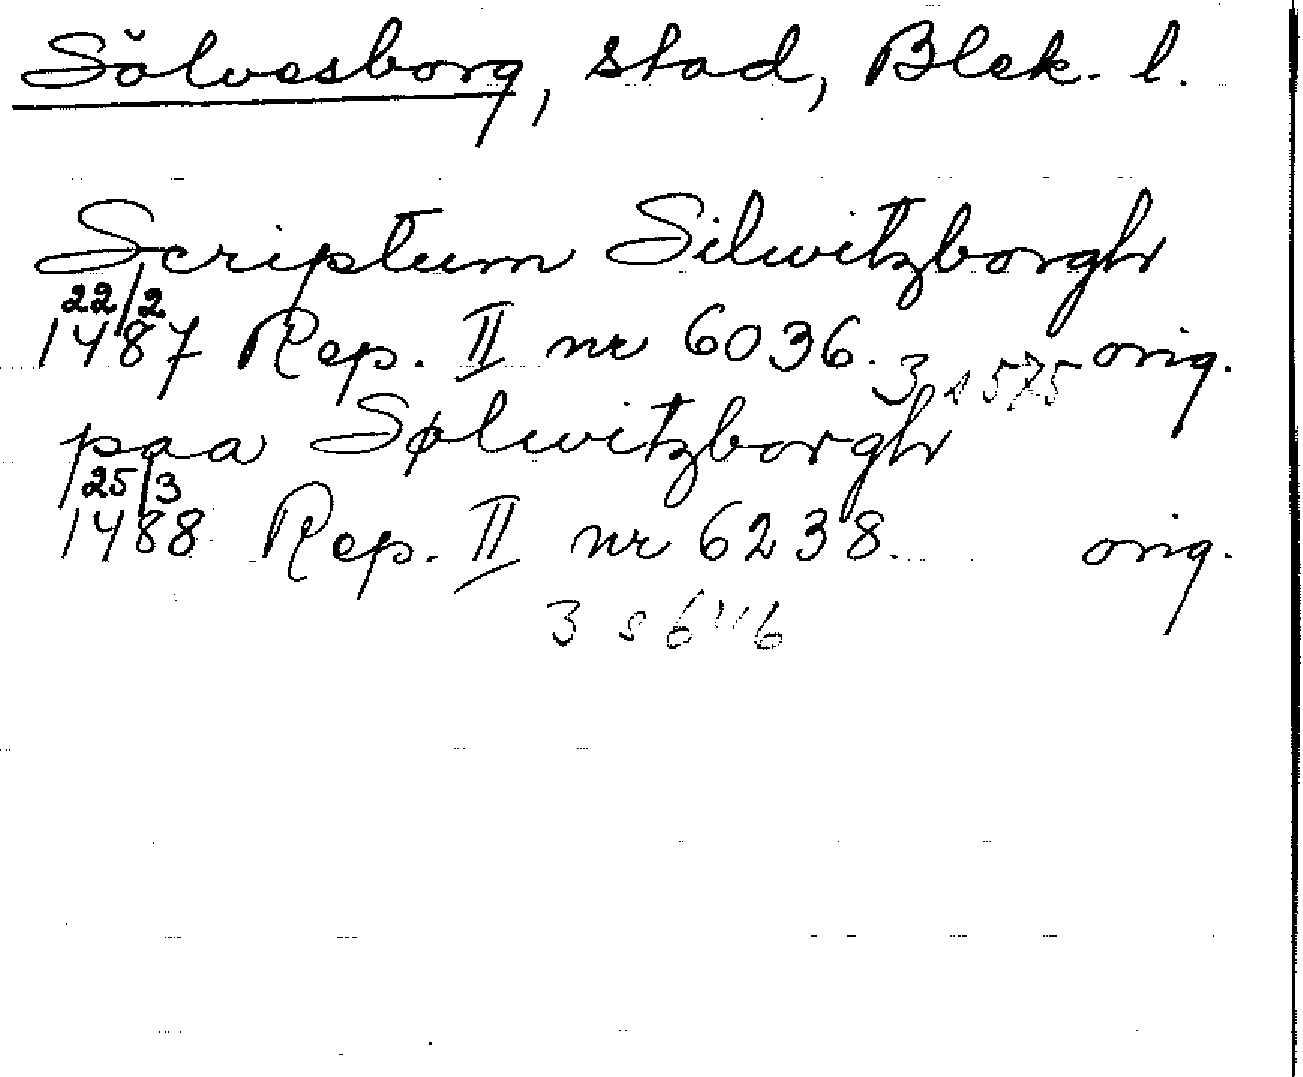 Sölvesborg, stad, Blek. l.
Scriptum Silwitzborgh
22/2
1487 Rep. II nr 6036. 3 s 575 orig.
paa Sølwitzborgh
25/3
1488 Rep. II nr 6238. orig.
3 s